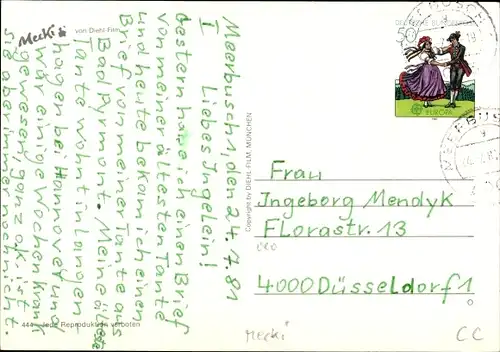 Meerbusch 1, den 24.7.81
Liebes Ingelein!
Gestern habe ich einen Brief
von meiner ältesten Tante
und heute bekam ich einen
Brief von meiner Tante aus
Bad Pyrmont. Meine
Tante wohnt in Langen
hagen bei Hannover und
war einige Wochen krank
gewesen, ganz ok. ist
sie aber immer noch nicht.
Mecki
von Diehl-Film
444 Jede Reproduktion verboten
Copyright by DIEHL FILM, MÜNCHEN
DEUTSCHE BUNDESPOST
50
EUROPA
MEERBUSCH
Frau
Ingeborg Mendyk
Florastr. 13
4000 Düsseldorf 1
Mecki
CC